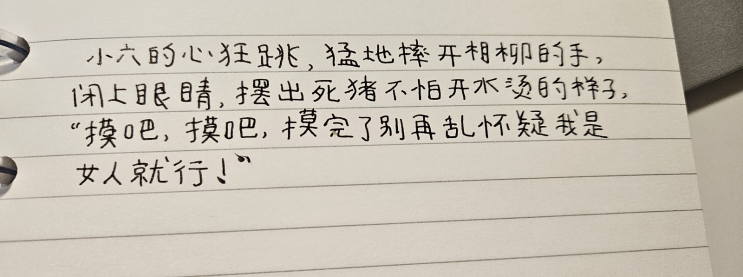 小六的心狂跳，猛地摔开相柳的手，
闭上眼睛，摆出死猪不怕开水烫的样子，
“摸吧，摸吧，摸完了别再乱怀疑我是
女人就行！”